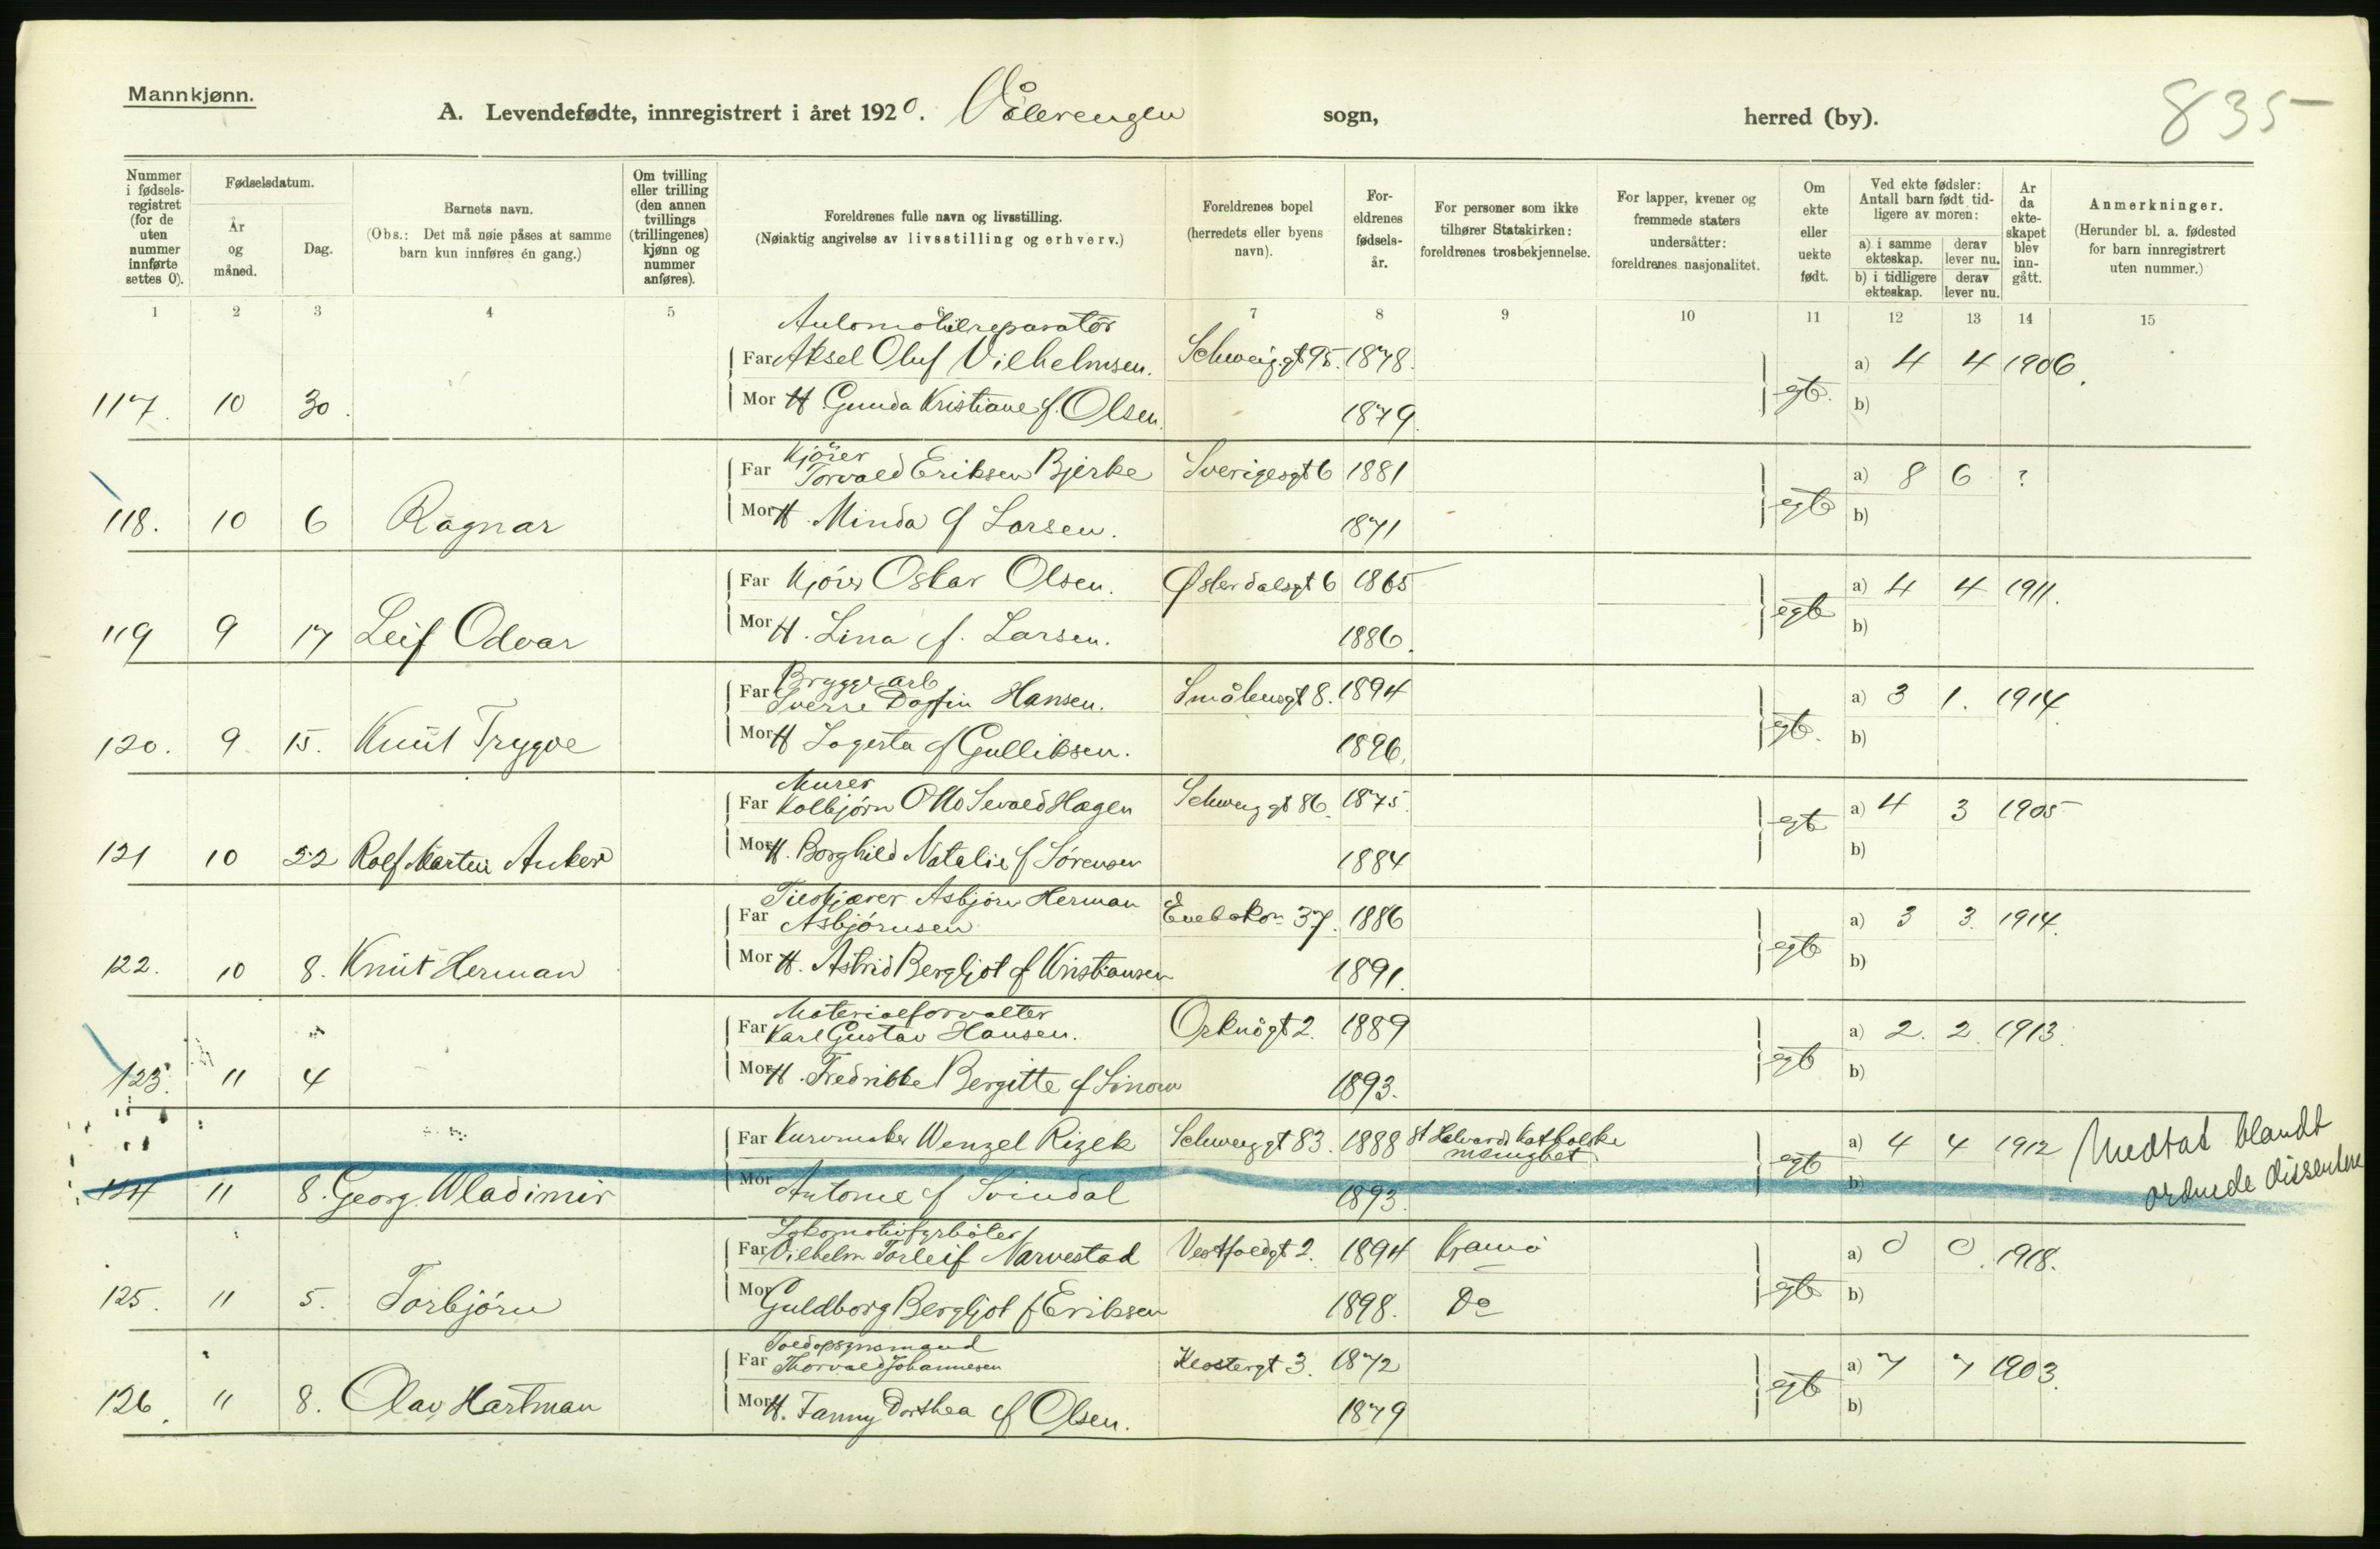 Mannkjønn.
A. Levendefødte, innregistrert i året 1920. Vålerengen sogn, herred (by).
835
Nummer i fødsels-registret (for de uten nummer innførte settes 0).
Fødselsdatum.
År og måned.
Dag.
Barnets navn.
(Obs.: Det må nøie påses at samme barn kun innføres én gang.)
Om tvilling eller trilling (den annen tvillings (trillingenes) kjønn og nummer anføres).
Foreldrenes fulle navn og livsstilling.
(Nøiaktig angivelse av livsstilling og erhverv.)
Foreldrenes bopel (herredets eller byens navn).
For-eldrenes fødsels-år.
For personer som ikke tilhører Statskirken: foreldrenes trosbekjennelse.
For lapper, kvener og fremmede staters undersåtter: foreldrenes nasjonalitet.
Om ekte eller uekte født.
Ved ekte fødsler: Antall barn født tid-ligere av moren:
a) i samme ekteskap. derav lever nu.
b) i tidligere ekteskap. derav lever nu.
År da ekte-skapet blev inn-gått.
Anmerkninger.
(Herunder bl. a. fødested for barn innregistrert uten nummer.)
1 2 3 4 5 6 7 8 9 10 11 12 13 14 15
Automobilreparatör
Far Aksel Oluf Vilhelmsen. Schweigg.gt 95. 1878. a) 4 4 1906.
117. 10 30. Mor H. Gunda Kristiane f. Olsen. 1879. egte. b)
Kjörer
Far Torvald Eriksen Bjerke Sverigesgt 6 1881 a) 8 6 ?
118. 10 6 Ragnar Mor H. Minda f Larsen. 1871 egte b)
Far Kjörer Oskar Olsen. Østerdalsgt 6 1865 a) 4 4 1911.
119 9 17 Leif Odvar Mor H. Lina f. Larsen. 1886. egte b)
Bryggearb
Far Sverre Dagfin Hansen. Smålensgt 8. 1894 a) 3 1. 1914.
120. 9 15. Knut Trygve Mor H Lagerta f Gulliksen. 1896. egte. b)
Murer
Far Kolbjörn Otto Sevald Hagen Schweiggt 86. 1875. a) 4 3 1905
121 10 22 Rolf Martin Anker Mor H. Borghild Natalie f Sörensen 1884 egte b)
Far Asbjörn Herman
Asbjörnsen Enebakv. 37. 1886 a) 3 3. 1914.
122. 10 8. Knut Herman Mor H. Astrid Bergljot f Kristiansen 1891. egte b)
Materialforvalter
Far Karl Gustav Hansen. Orknögt 2. 1889 a) 2. 2. 1913.
123. " 4 Mor H. Fredrikke Bergitte f 1893. egte b)
Far Kurvmaker Wenzel Rizek Schweiggt 83. 1888 St Halvards katholske menighet a) 4 4 1912 Medtat blandt
124 " 8. Georg Wladimir Mor Antonie f Svindal 1893. egte b) ordnede dissentere
Lokomotivfyrböter
Far Vilhelm Torleif Narvestad Vestfoldgt 2. 1894 a) 0 0. 1918.
125. " 5. Torbjörn Mor Guldborg Bergljot f Eriksen 1898. Do egte b)
Toldopsynsmand
Far Thorvald Johannesen Klostergt 3. 1872 a) 7 7 1903.
126. " 8. Olav Hartman Mor H. Fanny Dorthea f Olsen. 1879 egte b)